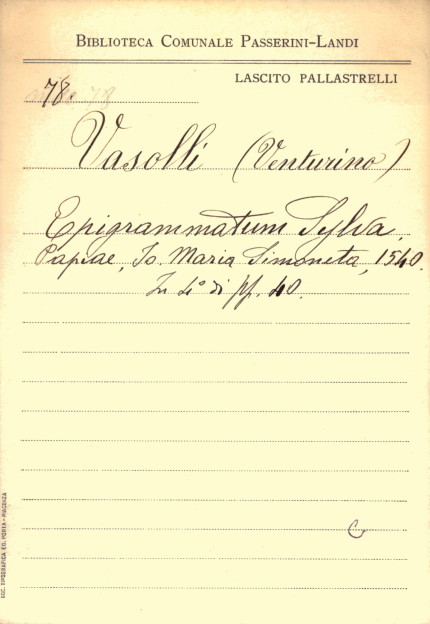 BIBLIOTECA COMUNALE PASSERINI-LANDI
LASCITO PALLASTRELLI
78.
Vasolli (Venturino)
Epigrammatum Sylva.
Papiae, Io. Maria Simoneta, 1540.
In 4° di pp. 40.
C
SOC. TIPOGRAFICA ED. PORTA-PIACENZA